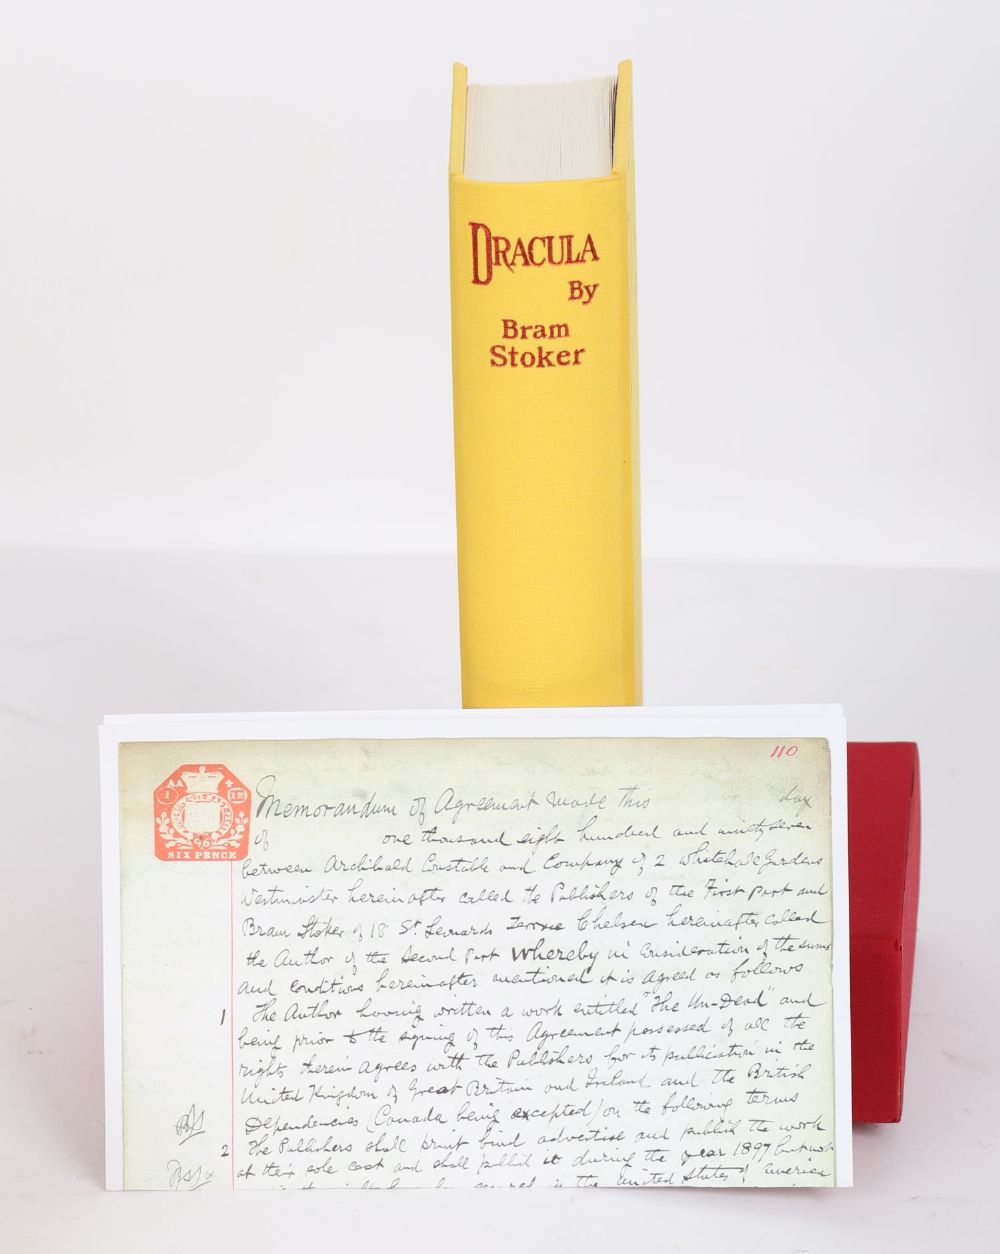 DRACULA
By
Bram
Stoker
110
AA
1 12
96
SIX PENCE
Memorandum of Agreement made this day
of one thousand eight hundred and ninety seven
between Archibald Constable and Company of 2 Whitehall Gardens
Westminster hereinafter called the Publishers of the First part and
Bram Stoker of 18 St. Leonards Terrace Chelsea hereinafter called
the Author of the Second Part Whereby in consideration of the sums
and conditions hereinafter mentioned it is agreed as follows
1 The Author having written a work entitled "The Un-Dead" and
being prior to the signing of this Agreement possessed of all the
rights therein agrees with the Publishers for its publication in the
United Kingdom of Great Britain and Ireland and the British
Dependencies (Canada being excepted) on the following terms
2 The Publishers shall print bind advertise and publish the work
at their sole cost and shall publish it during the year 1897 but not
in the United States of America